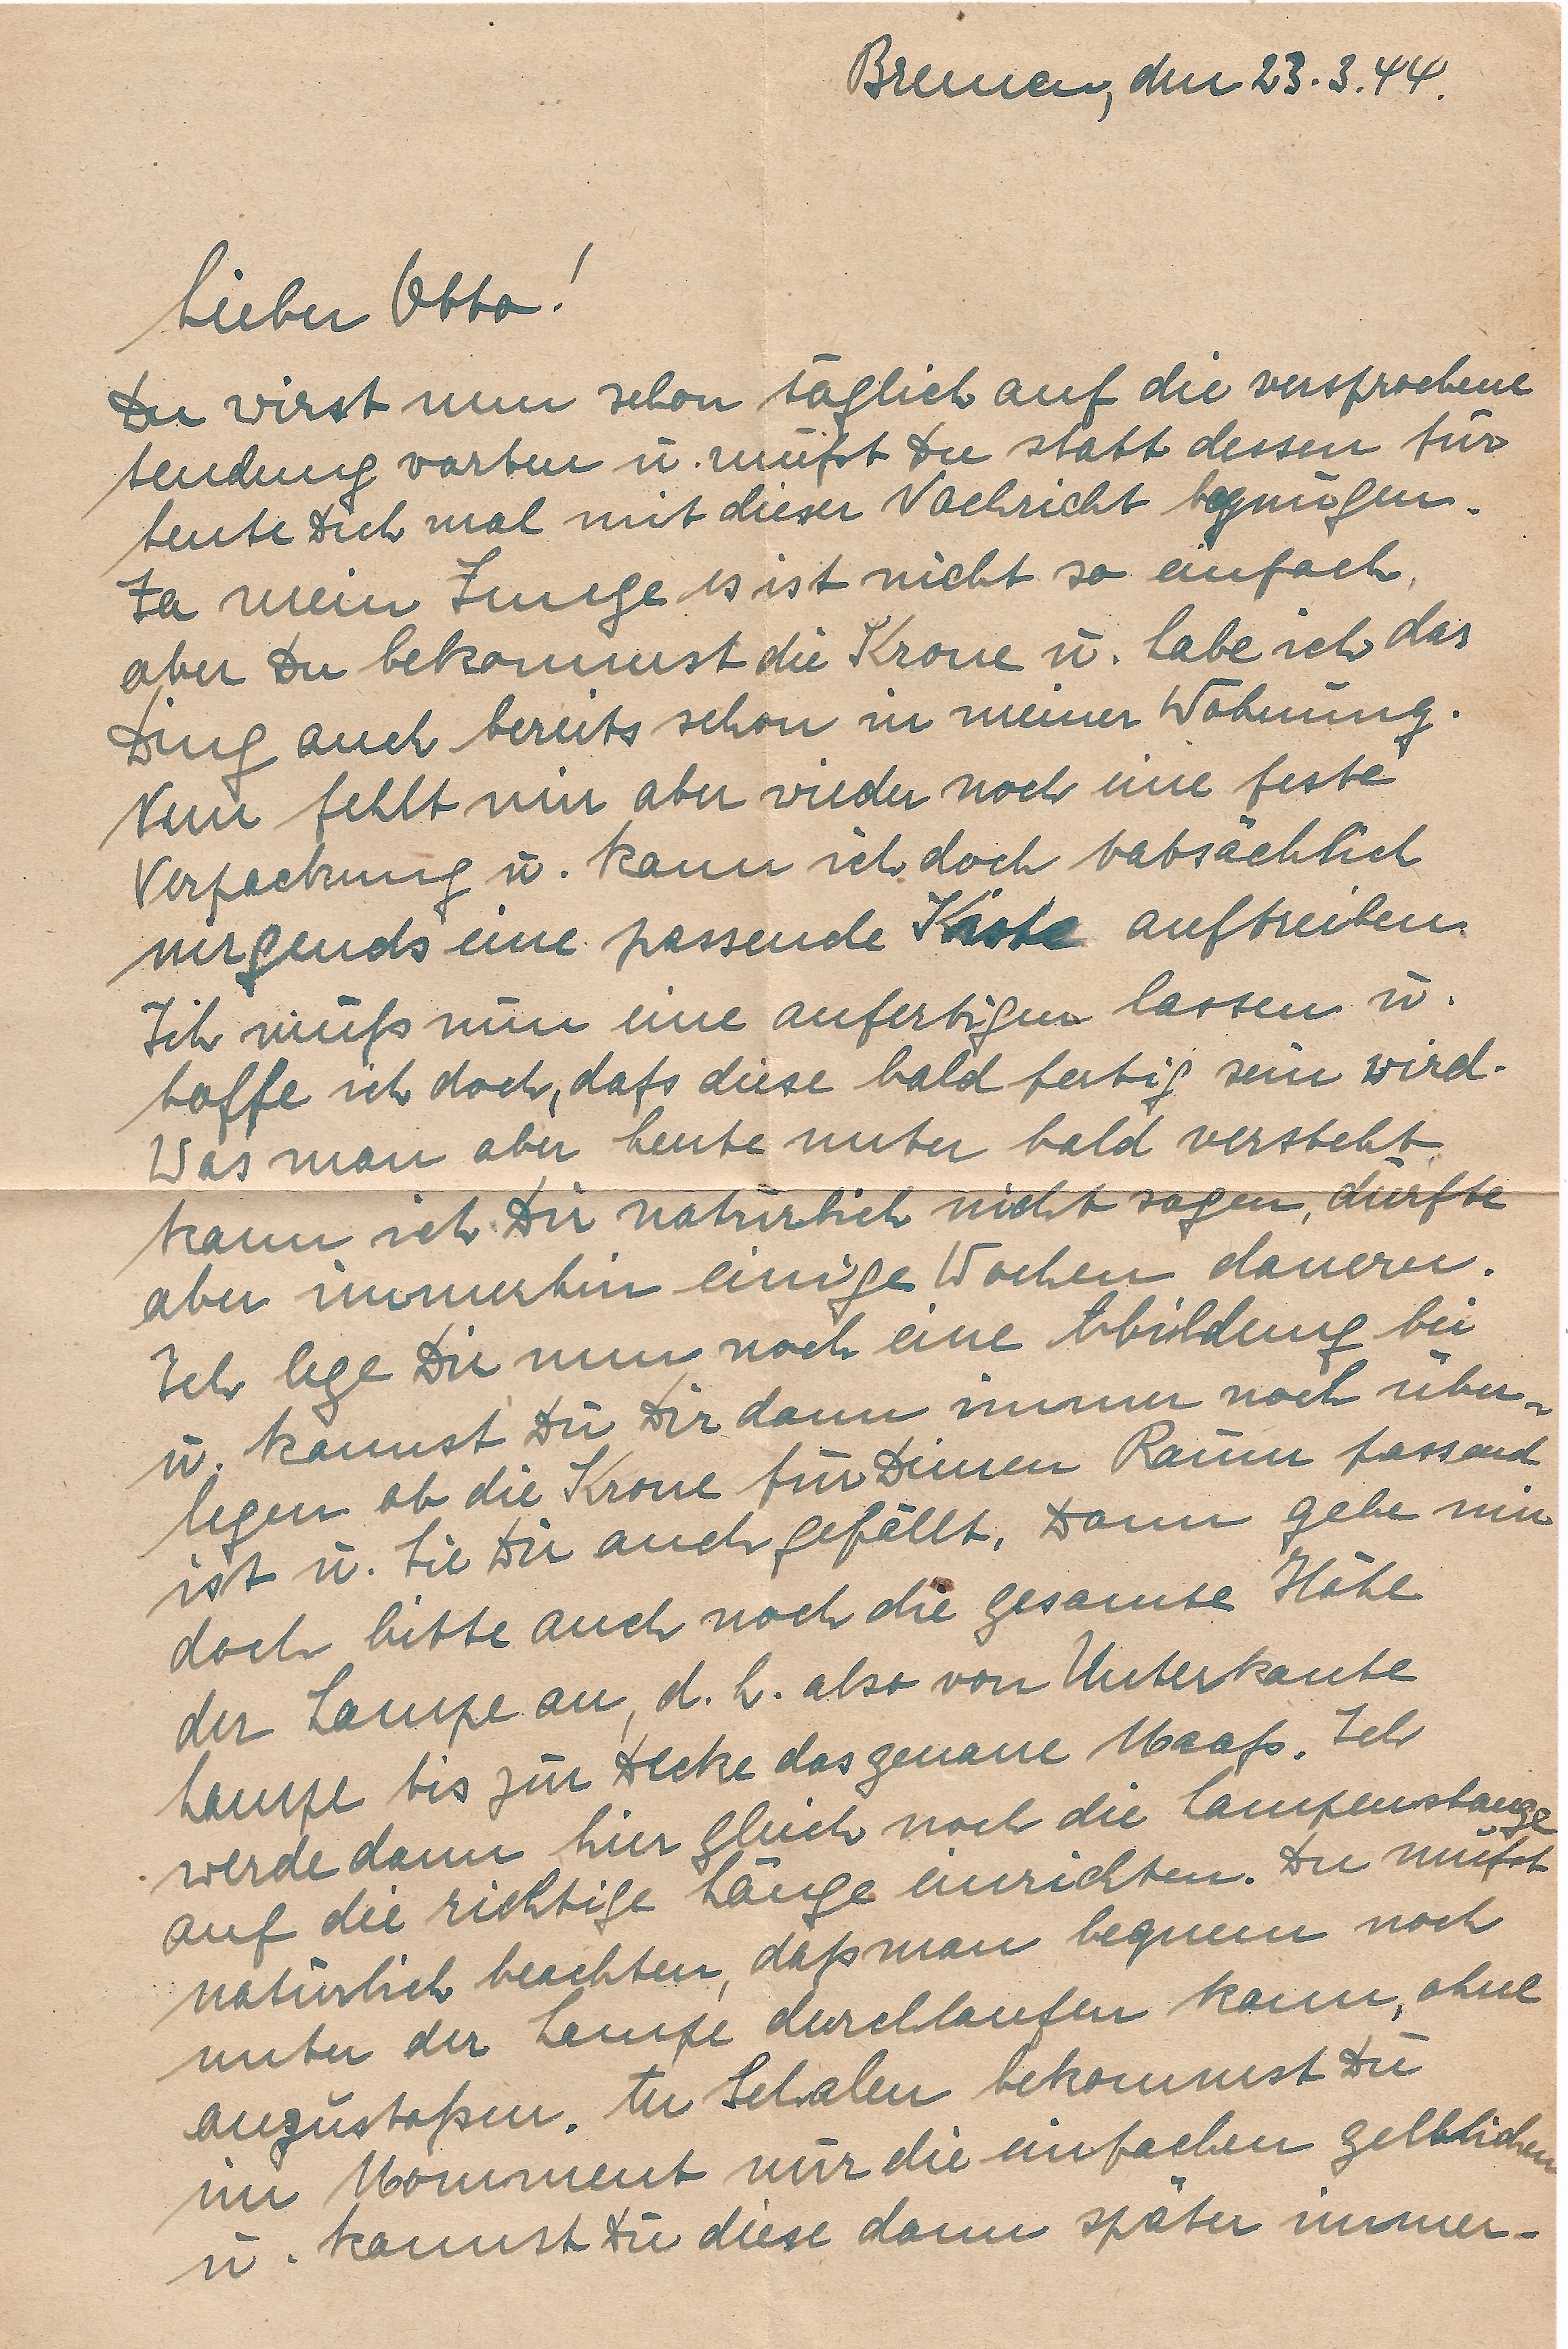 Bremen, den 23.3.44.
Lieber Otto!
Du wirst nun schon täglich auf die versprochene
Sendung warten u. mußt Du statt dessen für
heute Dich mal mit dieser Nachricht begnügen.
Ja mein Junge es ist nicht so einfach,
aber Du bekommst die Krone u. habe ich das
Ding auch bereits schon in meiner Wohnung.
Nun fehlt mir aber wieder noch eine feste
Verpackung u. kann ich doch tatsächlich
nirgends eine passende Kiste auftreiben.
Ich muß nun eine anfertigen lassen u.
hoffe ich doch, daß diese bald fertig sein wird.
Was man aber heute unter bald versteht,
kann ich Dir natürlich nicht sagen, dürfte
aber immerhin einige Wochen dauern.
Ich lege Dir nun noch eine Abbildung bei
u. kannst Du Dir dann immer noch über-
legen ob die Krone für Deinen Raum passend
ist u. Sie Dir auch gefällt. Dann gebe mir
doch bitte auch noch die gesamte Höhe
der Lampe an, d. h. also von Unterkante
Lampe bis zur Decke das genaue Maaß. Ich
werde dann hier gleich noch die Lampenstange
auf die richtige Länge einrichten. Du mußt
natürlich beachten, daß man bequem noch
unter der Lampe durchlaufen kann, ohne
anzustoßen. An Schalen bekommst Du
im Momment nur die einfachen gelblichen
u. kannst Du diese dann später immer-